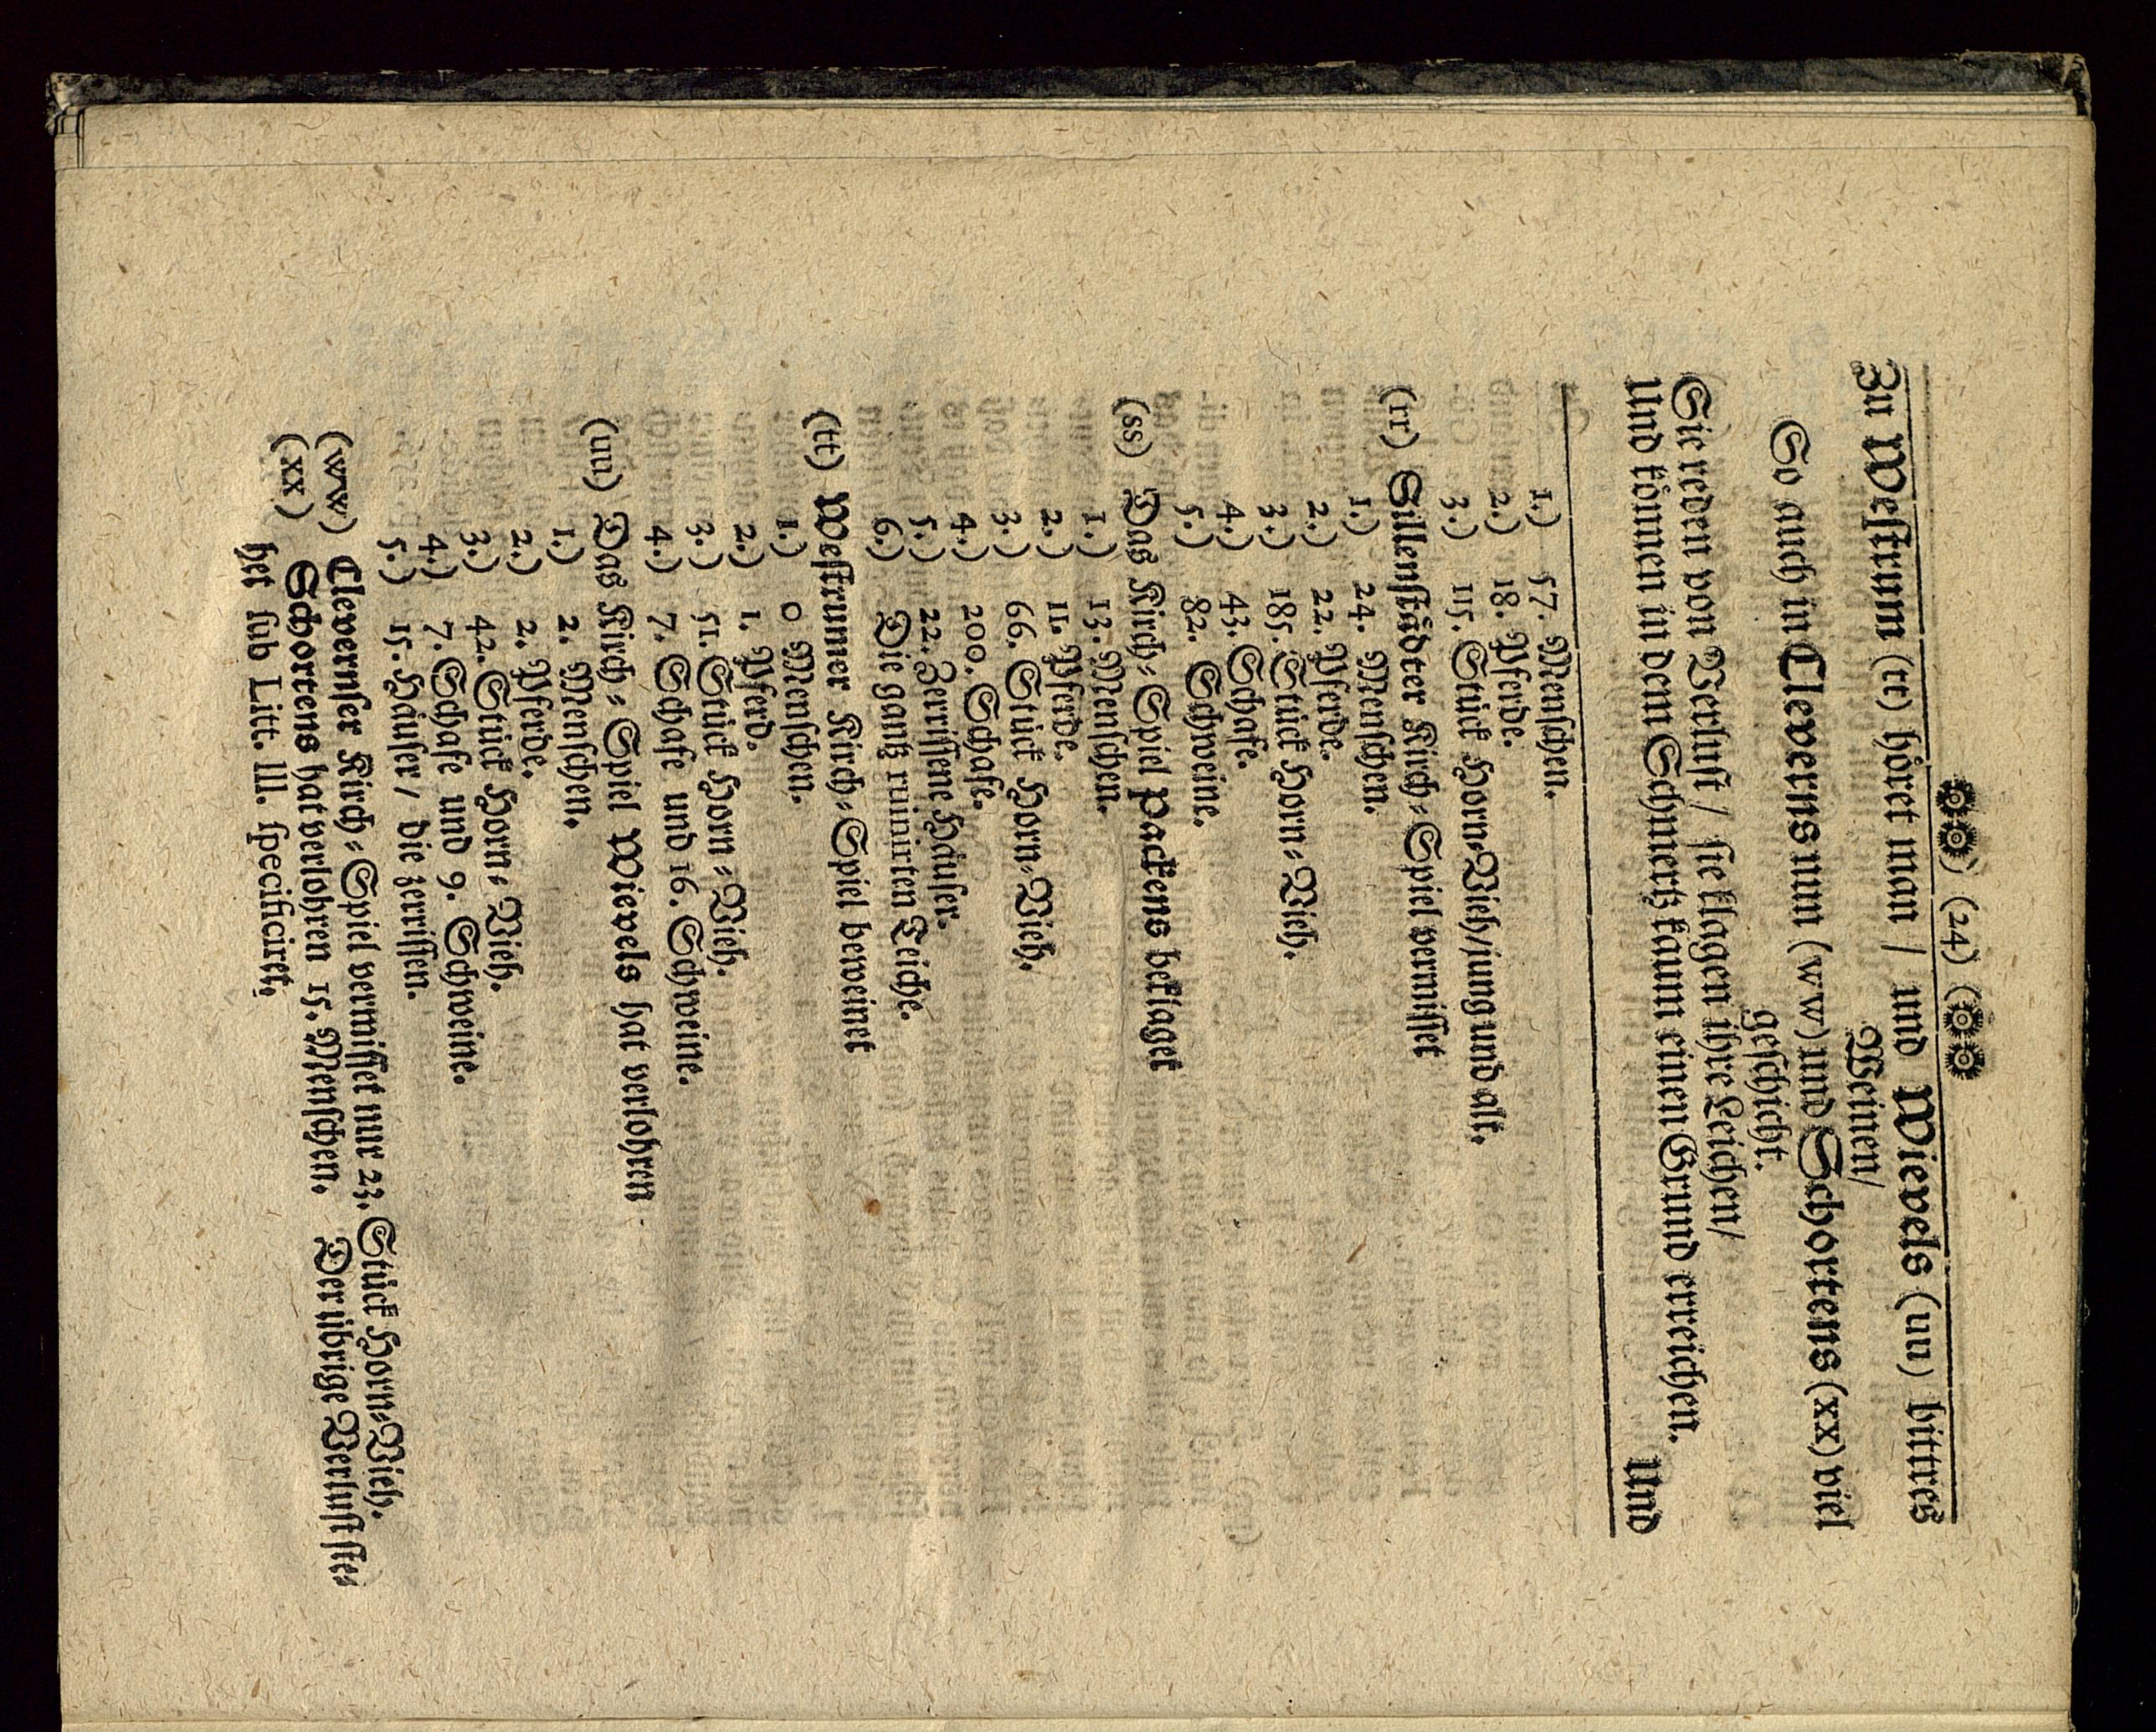 (24)
Zu Westrum (tt) höret man / und Wievels (uu) bittres
Weinen/
So auch in Clevernsnun (ww) und Schortens (xx) viel
geschicht.
Sie reden von Verlust / sie klagen ihre Leichen/
Und können in dem Schmertz kaum einen Grund erreichen.
Und
1.) 57. Menschen.
2.) 18. Pferde.
3.) 115. Stück Horn-Vieh/ jung und alt.
(rr) Sillenstäder Kirch-Spiel vermisset
1.) 24. Menschen.
2.) 22. Pferde.
3.) 185. Stück Horn-Vieh.
4.) 43. Schafe.
5.) 82. Schweine.
(ss) Das Kirch-Spiel Packens beklaget
1.) 13. Menschen.
2.) 11. Pferde.
3.) 66. Stück Horn-Vieh.
4.) 200. Schafe.
5.) 22. Zerrissene Häuser.
6.) Die gantz ruinirten Teiche.
(tt) Westrumer Kirch-Spiel beweinet
1.) 0 Menschen.
2.) 1. Pferd.
3.) 51. Stück Horn-Vieh.
4.) 7. Schafe und 16. Schweine.
(uu) Das Kirch-Spiel Wievels hat verlohren
1.) 2. Menschen.
2.) 2. Pferde.
3.) 42. Stück Horn-Vieh.
4.) 7. Schafe und 9. Schweine.
5.) 15. Häuser / die zerrissen.
(ww) Clevernser Kirch-Spiel vermisset nur 23. Stück Horn-Vieh.
(xx) Schortens hat verlohren 15. Menschen. Der übrige Verlust ste-
het sub Litt. III. specificiret.